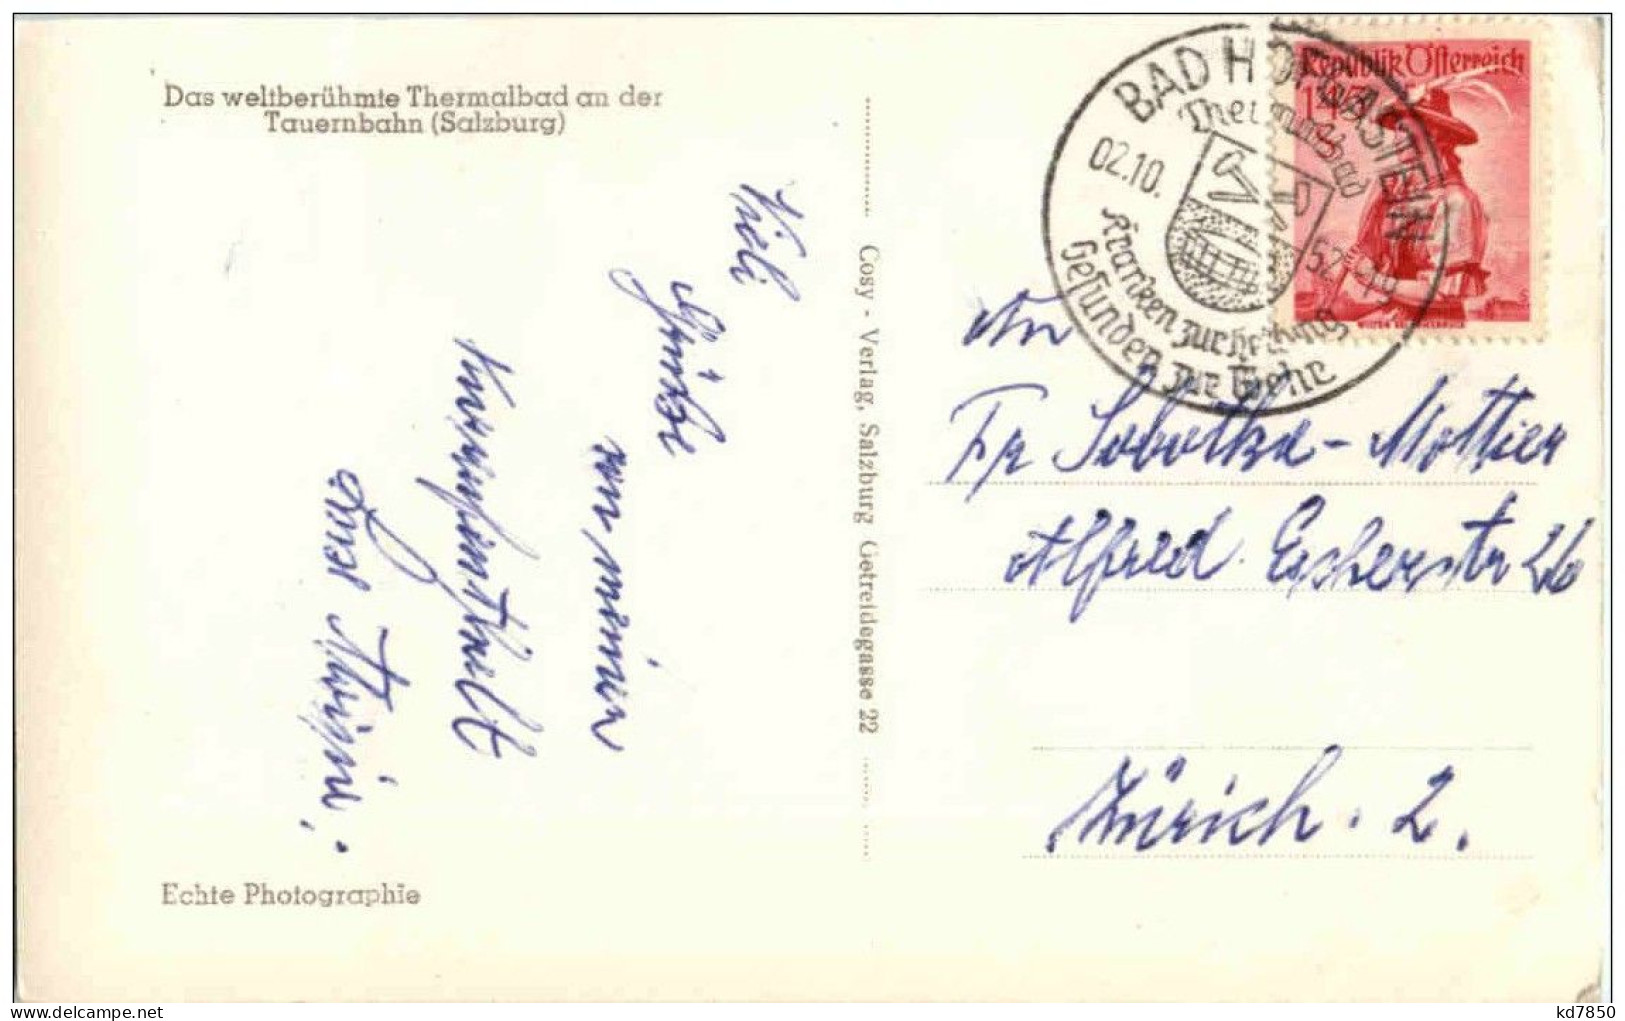 Das weltberühmte Thermalbad an der
Tauernbahn (Salzburg)
Viele
Grüße
von meinem
Kuraufenthalt
Echte Photographie
Cosy - Verlag, Salzburg Getreidegasse 22
BAD HOFGASTEIN
Thermalbad
02.10. 52 - 19
Kranken zur Heilung
Gesunden zur Wehr
Republik Österreich
An
Fr Sobotka - Mottier
Alfred Escherstr 26
Zürich. 2.
kd7850